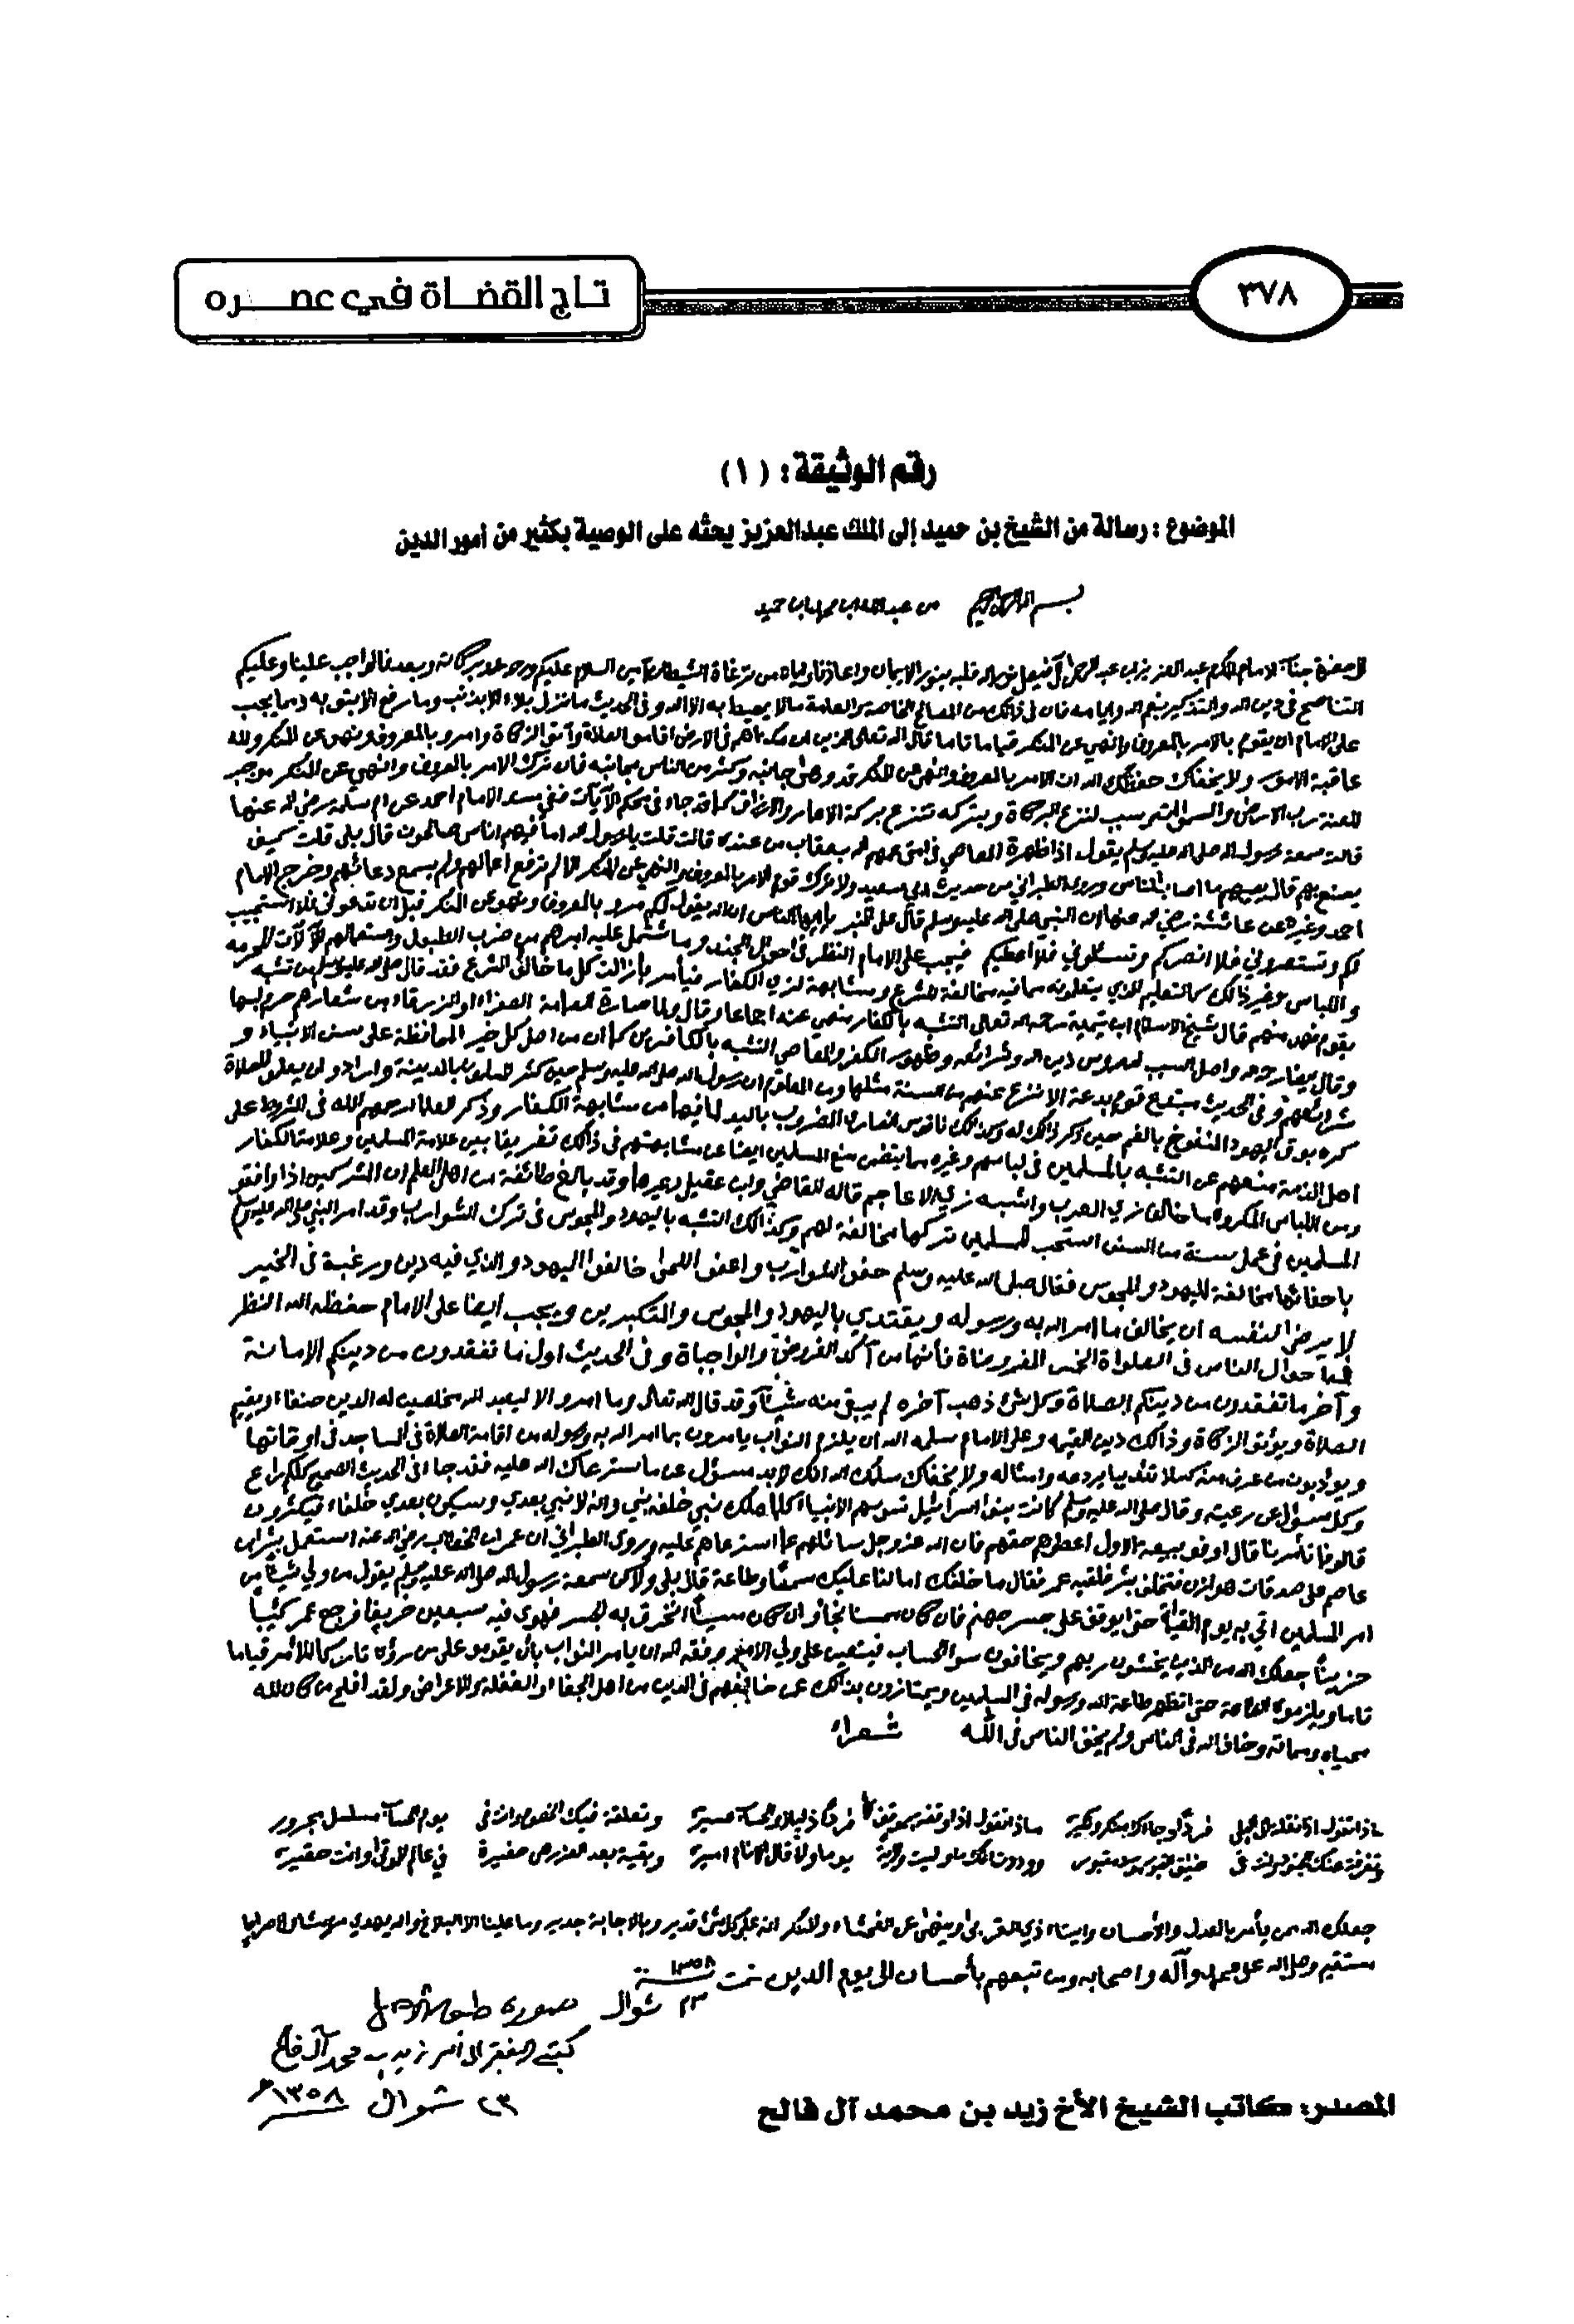 ٣٧٨
تاج القضاة في عصره
رقم الوثيقة : (١)
الموضوع : رسالة من الشيخ بن حميد إلى الملك عبدالعزيز يحثه على الوصية بكثير من أمور الدين
بسم الله الرحمن الرحيم من عبدالله ابن محمد ابن حميد
جناب الامام المكرم عبد العزيز بن عبد الرحمن آل فيصل نور الله قلبه بنور الايمان واعاذنا واياه من نزغاة الشيطان آمين السلام عليكم ورحمة الله وبركاته وبعد فالواجب علينا وعليكم
التناصح في دين الله والتذكير بنعم الله وايامه فان في ذالك من المصالح الخاصة والعامة مالا يحيط به الا الله وفي الحديث ما نزل بلاء الا بذنب وما رفع الا بتوبه ومما يجب
على الامام ان يقوم بالامر بالمعروف والنهي عن المنكر قياما تاما قال الله تعالى الذين ان مكناهم في الارض اقاموا الصلاة وآتوا الزكاة وامرو بالمعروف ونهو عن المنكر ولله
عاقبة الامور ولا يخفاك حفظك الله ان الامر بالمعروف والنهي عن المنكر قد وهى جانبه وكثير من الناس مجانبه فان ترك الامر بالمعروف والنهي عن المنكر موجب
للعنة رب الارض والسموات سبب لنزع البركاة وبتركه تنزع بركة الاعمار والارزاق كما قد جاء في محكم الآيات ففي مسند الامام احمد عن ام سلمة رضي الله عنها
قالت سمعة رسول الله صلى الله عليه وسلم يقول اذا ظهرة المعاصي في امتي عمهم الله بعقاب من عنده قالت قلت يا رسول الله اما فيهم اناس صالحون قال بلى قلت كيف
يصنع بهم قال يصيبهم ما اصاب الناس وروى الطبراني من حديث ابي سعيد ولا ترك قوم الامر بالمعروف والنهي عن المنكر الا لم ترفع اعمالهم ولم يسمع دعائهم وخرج الامام
احمد وغيره عن عائشة رضي الله عنها ان النبي صلى الله عليه وسلم قال على المنبر يا ايها الناس ان الله يقول لكم مرو بالمعروف ونهو عن المنكر قبل ان تدعوني فلا استجيب
لكم وتستنصروني فلا انصركم وتسئلوني فلا اعطيكم فيجب على الامام النظر في احوال الجند وما شتمل عليه امرهم من ضرب الطبول واستعمالهم للآلات المحرمه
واللباس وغير ذالك كالتعليم الذي يتعلمونه مما فيه مخالفة للشرع ومشابهة لزي الكفار فيأمر بإزالت كل ما خالف الشرع فقد قال صلى الله عليه وسلم من تشبه
بقوم فهو منهم قال شيخ الاسلام ابن تيمية رحمه الله تعالى التشبه بالكفار منهي عنه اجماعا وقال ولما صارة العمامة الصفراء او الزرقاء من شعارهم حرم لبسها
وقال ايضا رحمه الله واصل السبب لدروس دين الله وشرائعه وظهور الكفر والمعاصي التشبه بالكافرين كما ان من اصل كل خير المحافظة على سنن الانبياء و
شرائعهم وفي الحديث ما بتدع قوم بدعة الا نزع عنهم من السنة مثلها ومن المعلوم ان رسول الله صلى الله عليه وسلم حين كثر المسلمون بالمدينة وارادو ان يعلمو للصلاة
كره بوق اليهود المنفوخ بالفم حين ذكر ذالك له وكذالك ناقوس النصارى المضروب باليد لما فيها من مشابهة الكفار وذكر العلما رحمهم الله في الشروط على
اهل الذمة منعهم عن التشبه بالمسلمين في لباسهم وغيره مما يتضمن منع المسلمين ايضا عن مشابهتهم في ذالك تفريقا بين علامة المسلمين وعلامة الكفار
ومن اللباس المكروه ما خالف زي العرب واشبه زي الاعاجم قاله القاضي وابن عقيل وغيرهما وقد بالغ طائفة من اهل العلم ان المشركين اذا وافقو
المسلمين في عمل سنة من السنن استحب للمسلمين تركها مخالفة لهم وكذالك التشبه باليهود والمجوس في ترك الشوارب وقد امر النبي صلى الله عليه وسلم
باحفائها مخالفة لليهود والمجوس فقال صلى الله عليه وسلم حفو الشوارب واعفو اللحى خالفوا اليهود والذي فيه دين ورغبة في الخير
لا يرضى لنفسه ان يخالف ما امر الله به ورسوله ويقتدي باليهود والمجوس والمتكبرين ويجب ايضا على الامام حفظه الله النظر
فيما حوال الناس في الصلواة الخمس المفروضاة فأنها من آكد الفروض والواجباة وفي الحديث اول ما تفقدون من دينكم الامانة
وآخر ما تفقدون من دينكم الصلاة وكل شئ ذهب آخره لم يبق منه شيئا وقد قال الله تعالى وما امرو الا ليعبد الله مخلصين له الدين حنفاء ويقيمو
الصلاة ويؤتو الزكاة وذالك دين القيمه وعلى الامام سلمه الله ان يلزم النواب يامرون بما امر الله به ورسوله من اقامة الصلاة في المساجد في اوقاتها
ويؤدبون من عرف منه كسلا تأديبا يردعه وامثاله ولا يخفاك سلمك الله انك لابد مسؤل عن ما سترعاك الله عليه فقد جاء في الحديث الصحيح كلكم راع
وكل مسؤل عن رعيته وقال صلى الله عليه وسلم كانت بنوا اسرائيل تسوسهم الانبياء كلما هلك نبي خلفه نبي وانه لا نبي بعدي وسيكون بعدي خلفاء فيكثرون
قالو فما تأمرنا قال اوفو ببيعة الاول اعطوهم حقهم فان الله عز وجل سائلهم عما استرعاهم عليه وروى الطبراني ان عمر ابن الخطاب رضي الله عنه استعمل بشر ابن
عاصم على صدقات هوازن فتخلف بشر فلقيه عمر فقال ما خلفك اما لنا عليك سمعا وطاعة قال بلى ولاكن سمعة رسول الله صلى الله عليه وسلم يقول من ولي شيئا من
امر المسلمين اتي به يوم القيامة حتى يوقف على جسر جهنم فان كان محسنا نجا وان كان مسيئا انخرق به الجسر فهوى فيه سبعين خريفا فرجع عمر كئيبا
حزينا جعلك الله من الذين يخشون ربهم ويخافون سو الحساب فيتعين على ولي الامر وفقه الله ان يامر النواب بأن يقومو على من رؤه تاركا للأمر قياما
تاما ويلزموه الطاعة حتى تظهر طاعة الله ورسوله في المسلمين ويمتازون بذالك عن خالفهم في الدين من اهل الجفاء والغفلة والاعراض ولقد افلح من كان لله
محياه ومماته وخاف الله في الناس ولم يخف الناس في الله شعراء
ماذا تقول اذا نقلة الى البلى فردا وجاءك منكر ونكير ماذا تقول اذا وقفة بموقف فردا ذليلا والحساب عسير وتعلقة فيك الخصوم وانت في يوم الحساب مسلسل مجرور
وتفرقة عنك الجنود وانت في ضيق القبور موسد مقبور ووددت انك ما وليت ولاية يوما ولا قال الانام امير وبقية بعد العز رهن حفيرة في عالم الموتى وانت حقير
جعلك الله ممن يأمر بالعدل والأحسان وايتاء ذي القربى وينهى عن الفحشاء والمنكر انه على كل شئ قدير وبالاجابة جدير وما علينا الا البلاغ والله يهدي من يشاء الى صراط
مستقيم وصلى الله على محمد وآله واصحابه ومن تبعهم بأحسان الى يوم الدين تمت ١٣٥٨ سنة
٢٣ شوال صورة طبق الاصل
كتبه الفقير الى الله زيد بن محمد آل فالح
٢٣ شوال ١٣٥٨هـ
المصدر: كاتب الشيخ الأخ زيد بن محمد آل فالح